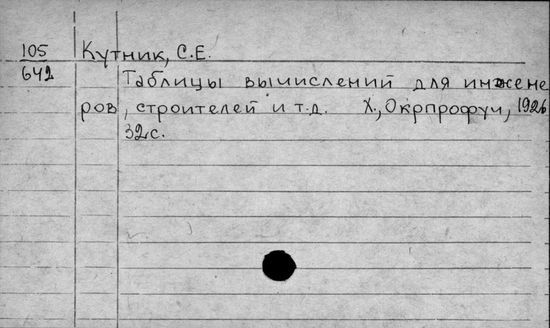 105 Кутник, С.Е.
642
Таблицы вычислений для инжене
ров, строителей и т.д. Х., Окрпрофуч, 1926
32с.